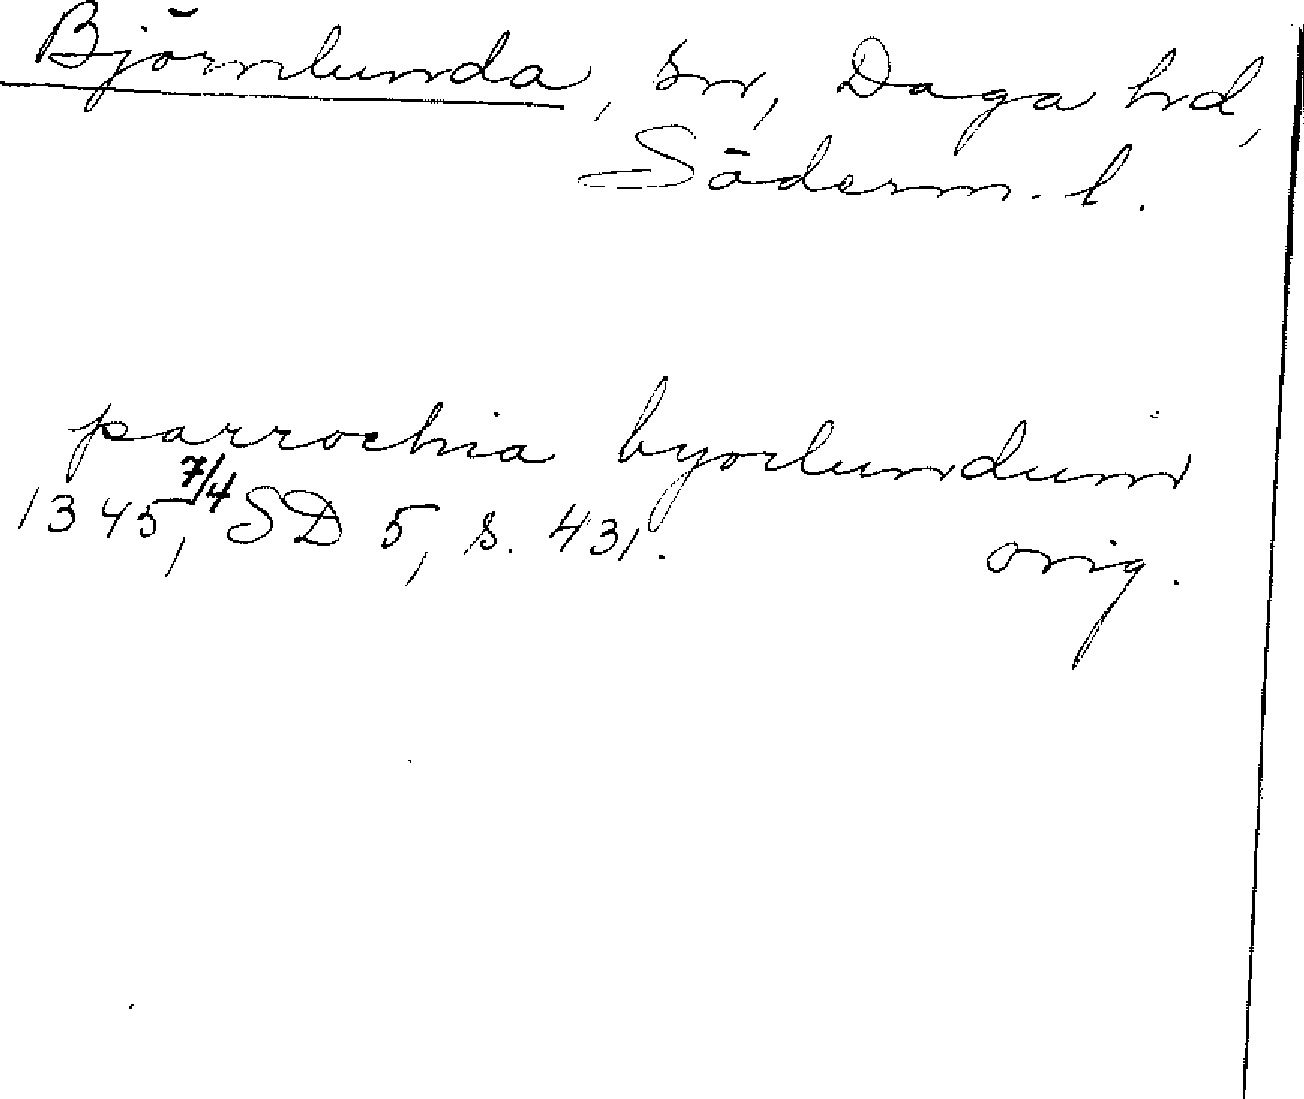 Björnlunda, sn, Daga hd,
Söderm. l.
parrochia byorlundum
1345, 7/4 SD 5, s. 431.
orig.